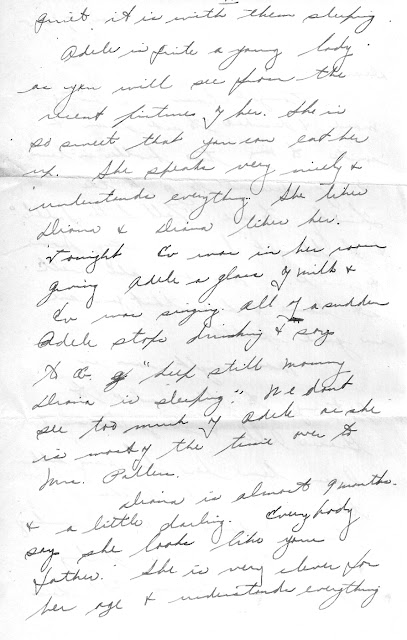 quiet it is with them sleeping.
Adele is quite a young lady
as you will see from the
recent pictures of her. She is
so sweet that you can eat her
up. She speaks very nicely &
understands everything. She likes
Diana & Diana likes her.
Tonight Ev was in her room
giving Adele a glass of milk &
Ev was singing. All of a sudden
Adele stops drinking & says
to Ev "keep still Mommy
Diana is sleeping". We dont
see too much of Adele as she
is most of the time over to
Mrs.
Diana is almost 9 months.
& a little darling. Everybody
says she looks like your
father. She is very clever for
her age & understands everything